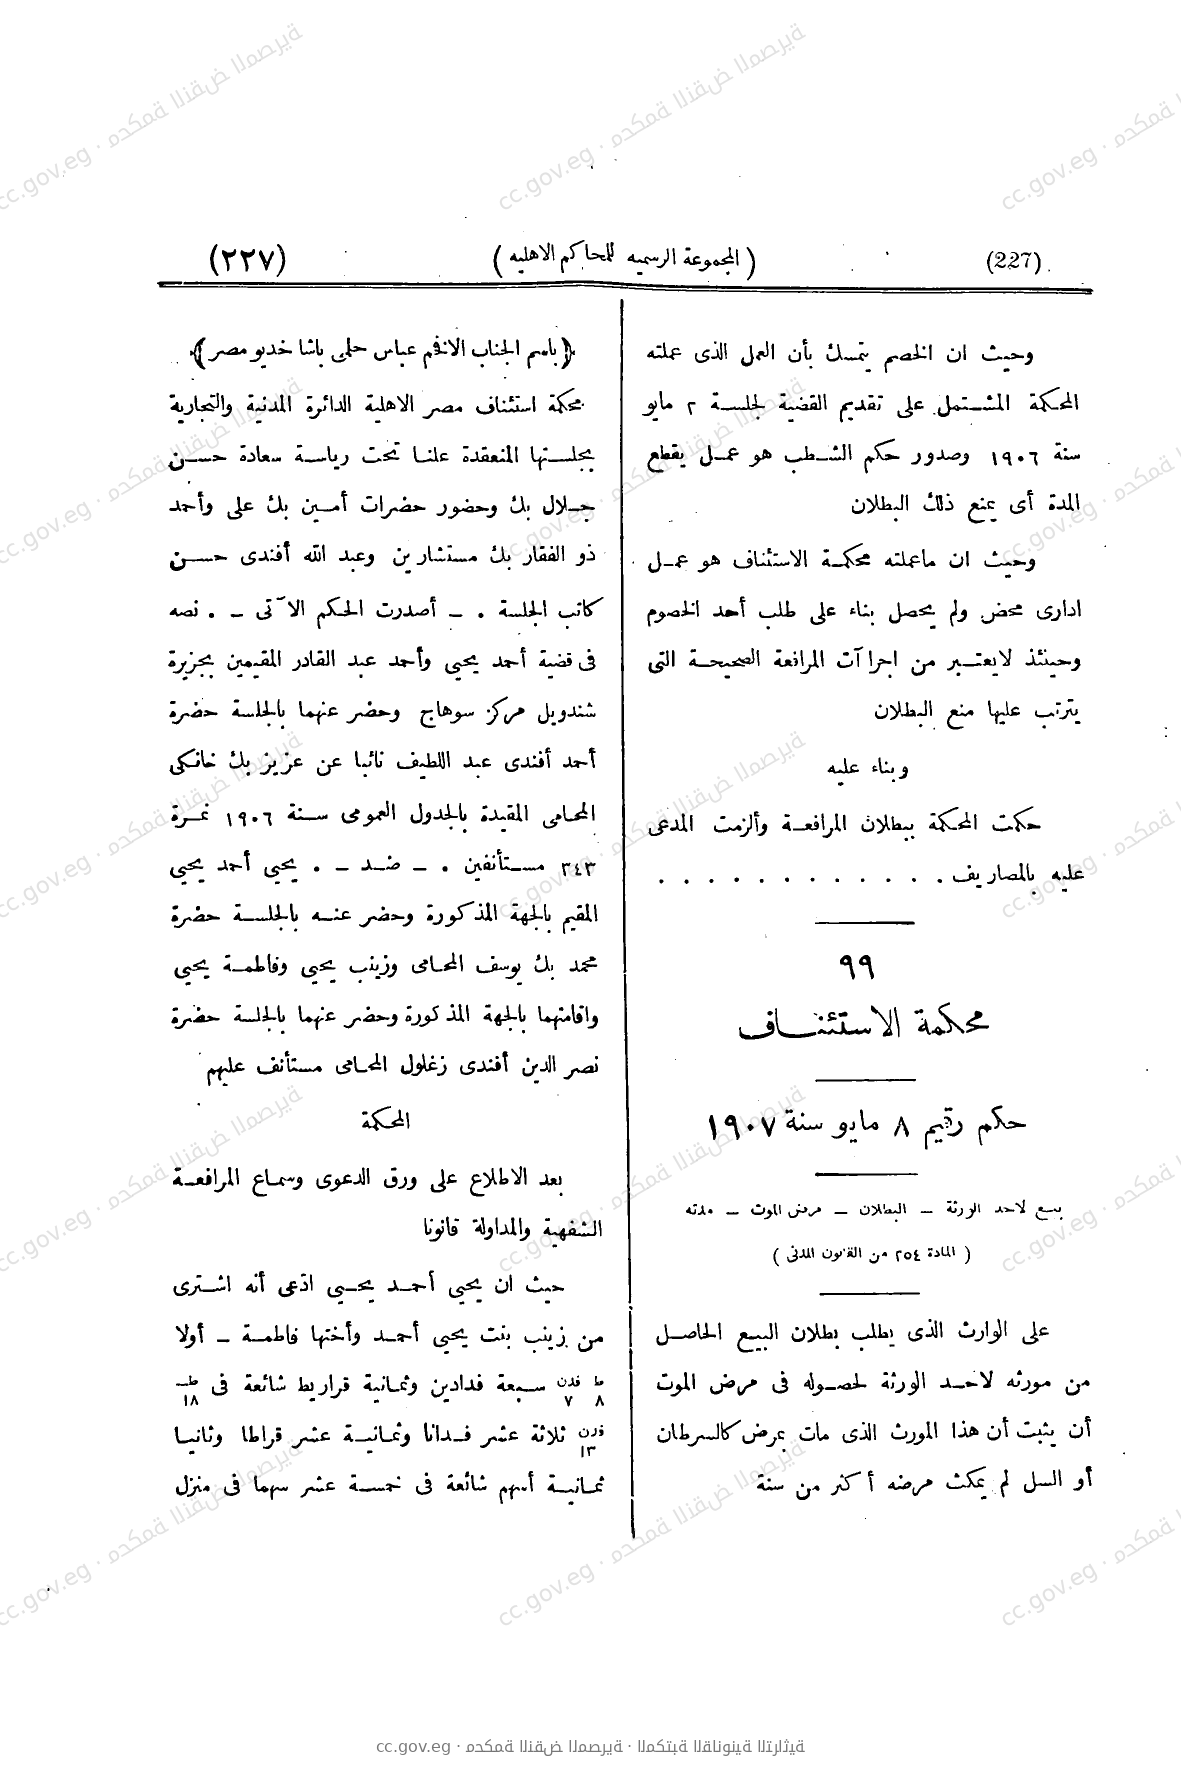 (227) ( المجموعة الرسمية للمحاكم الاهليه ) (٢٢٧)
وحيث ان الخصم يتمسك بأن العمل الذى عملته
المحكمة المشتمل على تقديم القضية لجلسة ٢ مايو
سنة ١٩٠٦ وصدور حكم الشطب هو عمل يقطع
المدة أى يمنع ذلك البطلان
وحيث ان ماعملته محكمة الاستئناف هو عمل
ادارى محض ولم يحصل بناء على طلب أحد الخصوم
وحينئذ لايعتبر من اجراآت المرافعة الصحيحة التى
يترتب عليها منع البطلان
وبناء عليه
حكمت المحكمة ببطلان المرافعة وألزمت المدعى
عليه بالمصاريف . . . . . . . . . . . .
٩٩
محكمة الاستئناف
حكم رقيم ٨ مايو سنة ١٩٠٧
بيع لاحد الورثة – البطلان – مرض الموت – مدته
( المادة ٢٥٤ من القانون المدنى )
على الوارث الذى يطلب بطلان البيع الحاصل
من مورثه لاحد الورثة لحصوله فى مرض الموت
أن يثبت أن هذا المورث الذى مات بمرض كالسرطان
أو السل لم يمكث مرضه أكثر من سنة
﴿ باسم الجناب الافخم عباس حلمى باشا خديو مصر ﴾
محكمة استئناف مصر الاهلية الدائرة المدنية والتجارية
بجلستها المنعقدة علنا تحت رياسة سعادة حسن
جلال بك وحضور حضرات أمين بك على وأحمد
ذو الفقار بك مستشارين وعبد الله أفندى حسن
كاتب الجلسة . – أصدرت الحكم الآتى – . نصه
فى قضية أحمد يحيى وأحمد عبد القادر المقيمين بجزيرة
شندويل مركز سوهاج وحضر عنهما بالجلسة حضرة
أحمد أفندى عبد اللطيف نائبا عن عزيز بك خانكى
المحامى المقيدة بالجدول العمومى سنة ١٩٠٦ نمرة
٣٤٣ مستأنفين . – ضد – . يحيى أحمد يحيى
المقيم بالجهة المذكورة وحضر عنه بالجلسة حضرة
محمد بك يوسف المحامى وزينب يحيى وفاطمة يحيى
واقامتهما بالجهة المذكورة وحضر عنهما بالجلسة حضرة
نصر الدين أفندى زغلول المحامى مستأنف عليهم
المحكمة
بعد الاطلاع على ورق الدعوى وسماع المرافعة
الشفهية والمداولة قانونا
حيث ان يحيى أحمد يحيى ادّعى أنه اشترى
من زينب بنت يحيى أحمد وأختها فاطمة – أولا
ط ٨ فدن ٧ سبعة فدادين وثمانية قراريط شائعة فى ط ١٨
فدن ١٣ ثلاثة عشر فدانا وثمانية عشر قراطا وثانيا
ثمانية أسهم شائعة فى خمسة عشر سهما فى منزل
cc.gov.eg · محكمة النقض المصرية · المكتبة القانونية التراثية